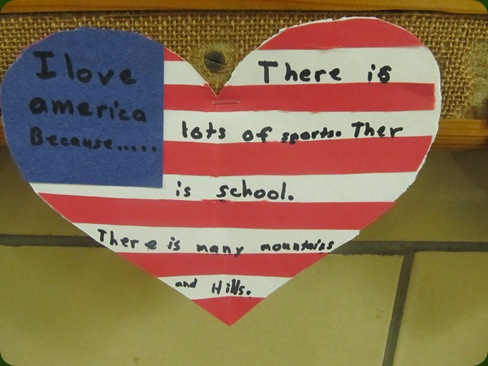 I love
america
Because.....
There is
lots of sports. Ther
is school.
There is many mountains
and Hills.